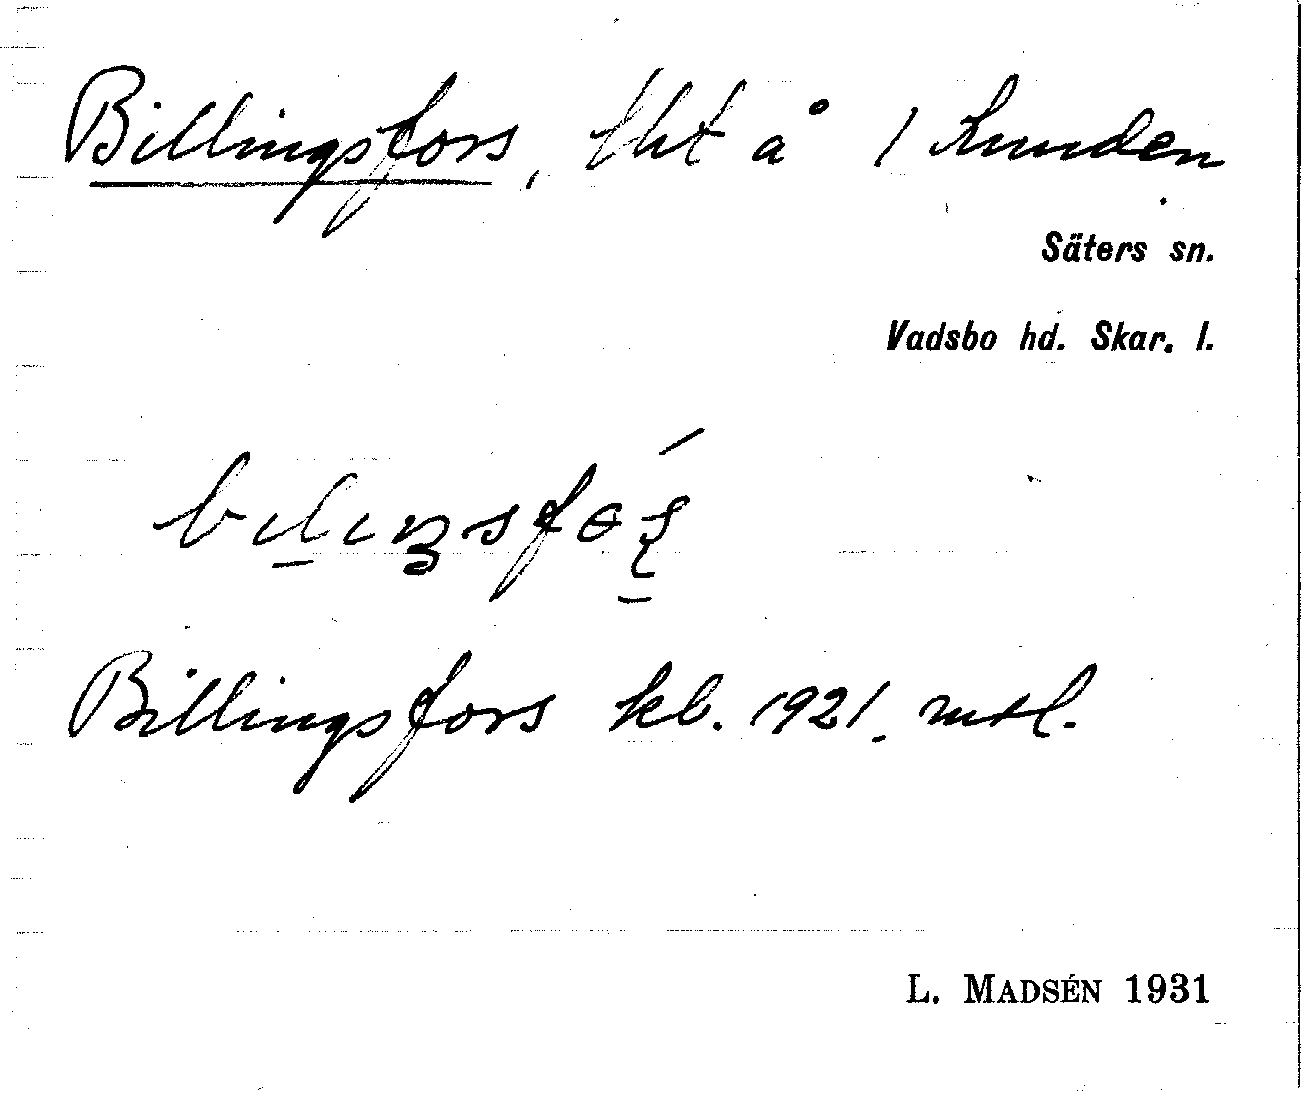 Billingsfors, tht å 1 Lunden
Säters sn.
Vadsbo hd. Skar. l.
Billingsfors kb. 1921. mtl.
L. MADSÉN 1931